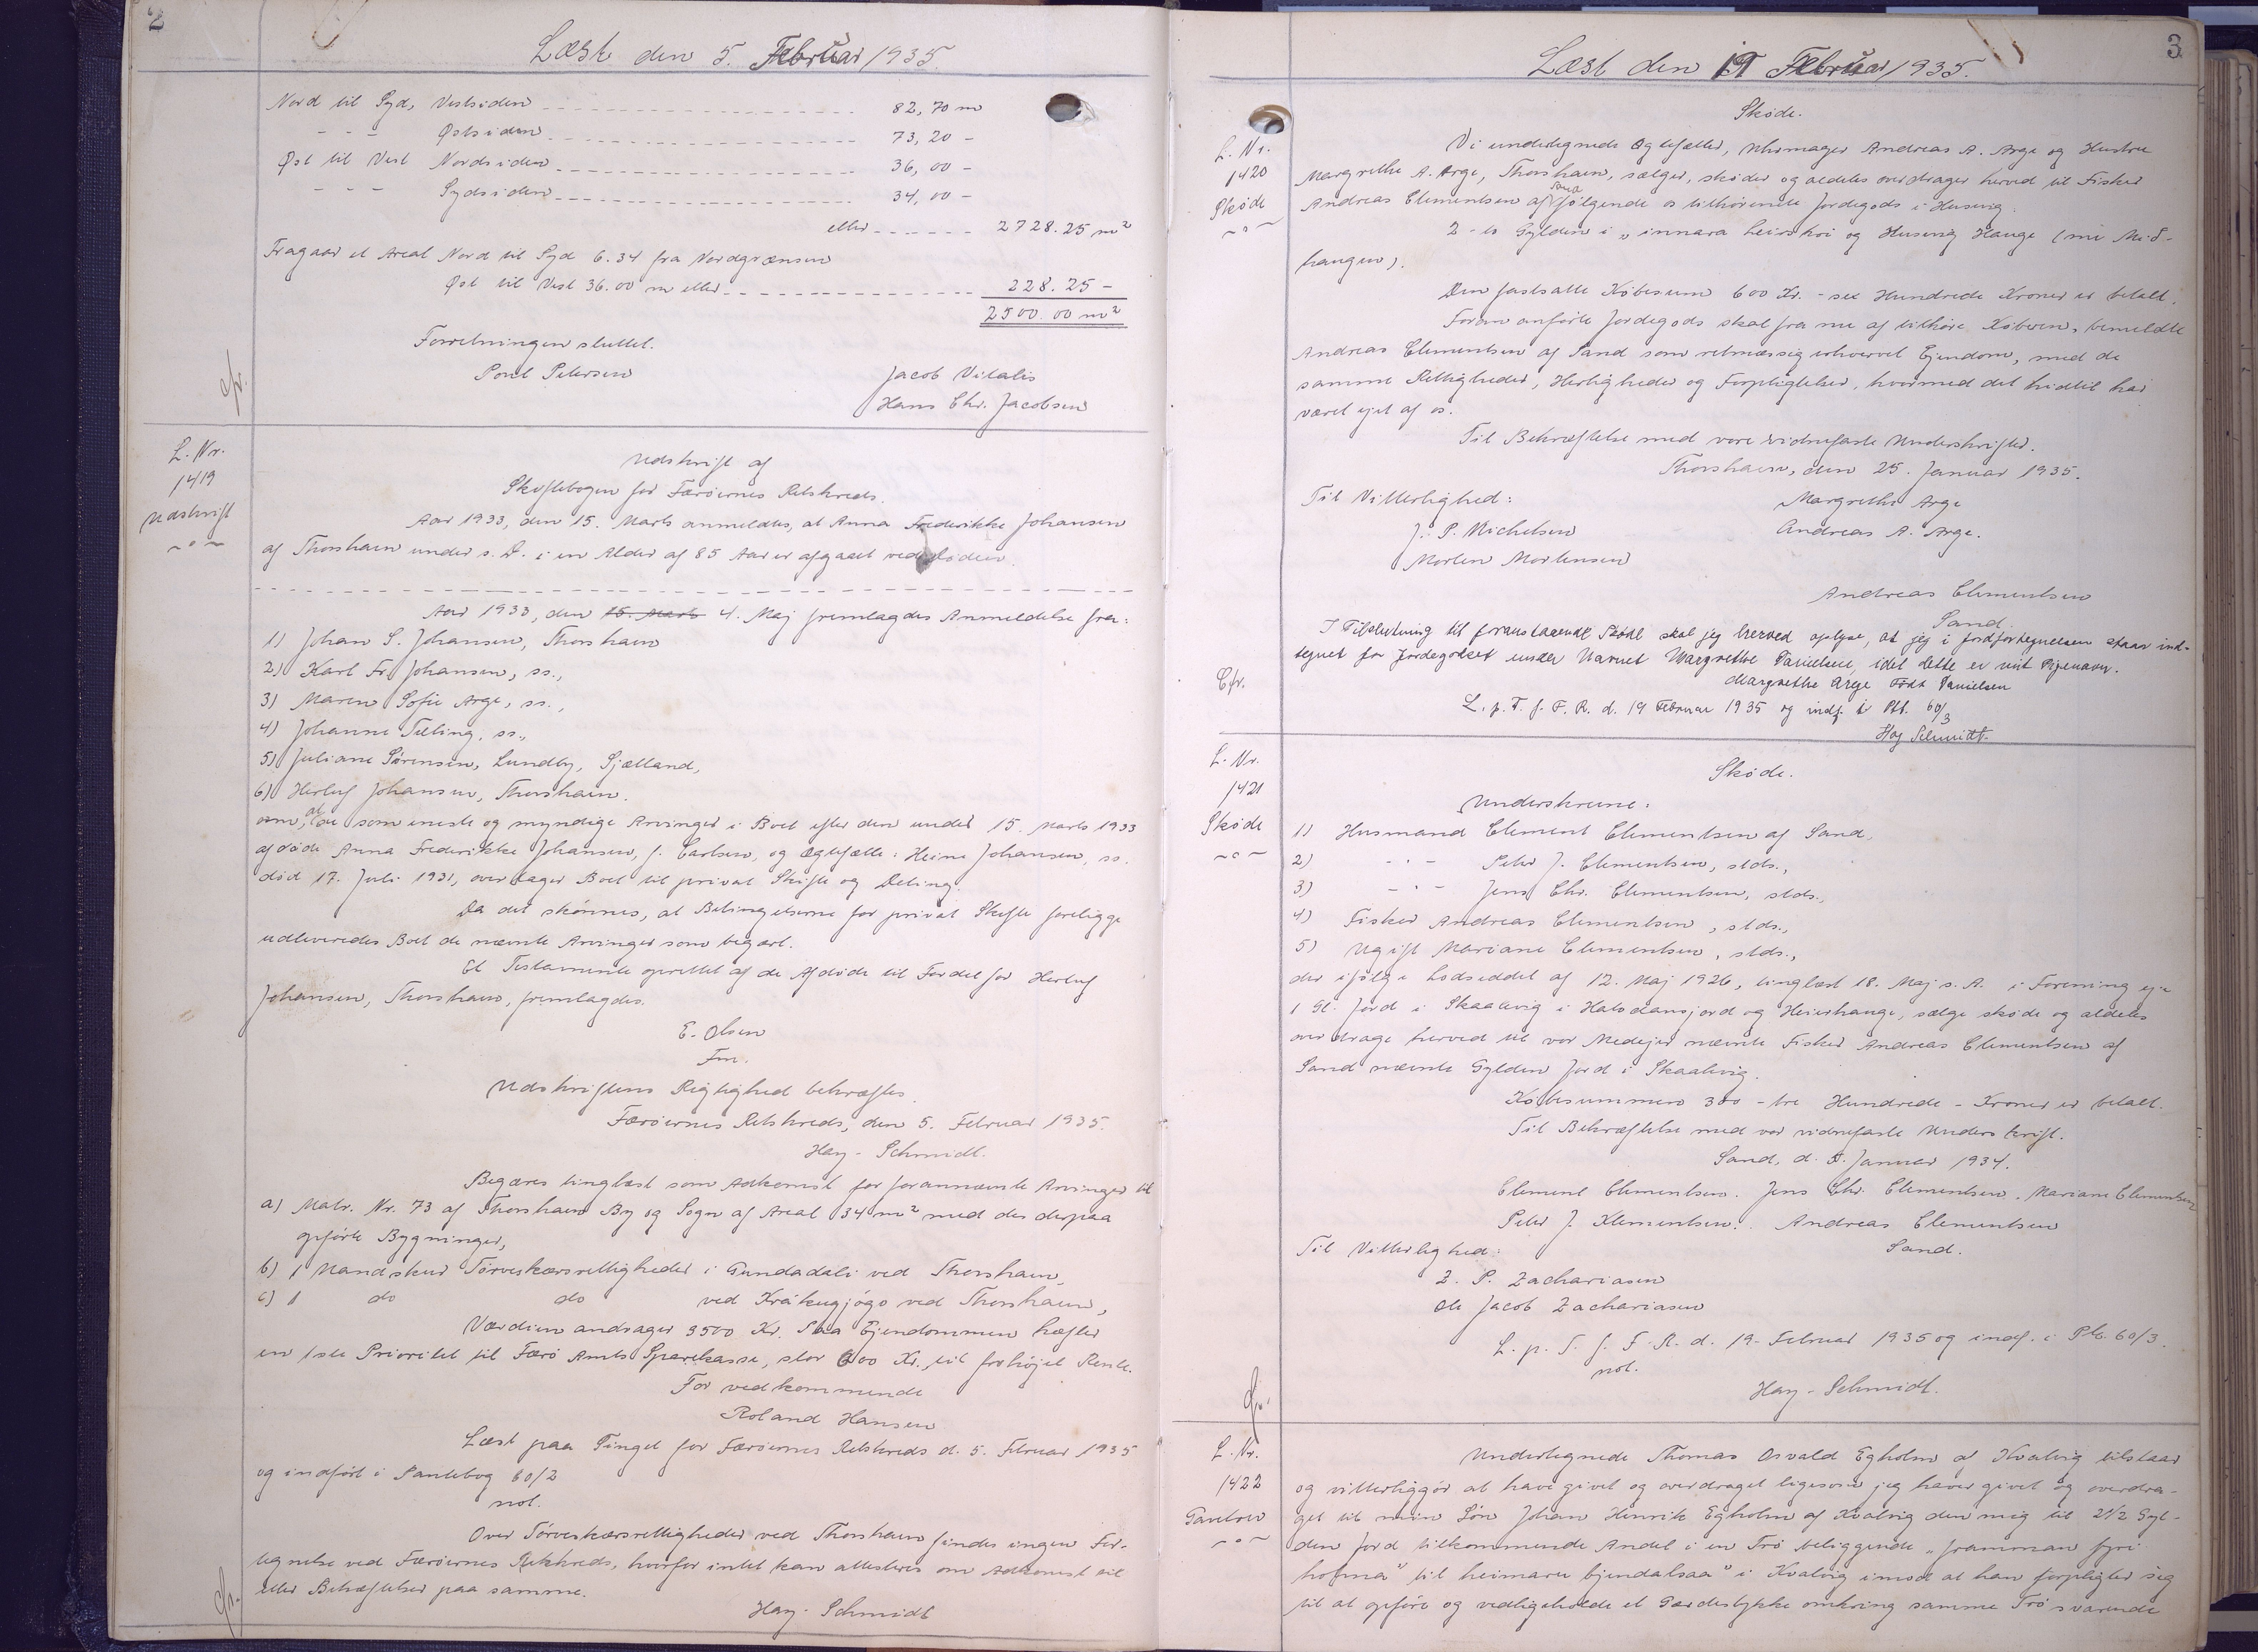 2
Læst den 5. Februar 1935.
Nord til Syd, Vestsiden 82,70 m
- - - Østsiden 73,20 -
Øst til Vest Nordsiden 36,00 -
- - - Sydsiden 34,00 -
eller 2728.25 m²
Fragaar et Areal Nord til Syd 6.34 fra Nordgrænsen
Øst til Vest 36.00 m eller 228.25 -
2500.00 m²
Forretningen sluttet.
Poul Petersen Jacob Vitalis
Hans Chr. Jacobsen
Cfr.
L. Nr.
1419
Udskrift
Udskrift af
Skiftebogen for Færøernes Retskreds.
Aar 1933, den 15. Marts anmeldtes, at Anna Frederikke Johansen
af Thorshavn under s. D. i en Alder af 85 Aar er afgaaet ved Døden.
Aar 1933, den 15. Marts 4. Maj fremlagdes Anmeldelse fra:
1) Johan S. Johansen, Thorshavn
2) Karl Fr. Johansen, ss.,
3) Maren Sofie Arge, ss.,
4) Johanne Tæling, ss.,
5) Juliane Sørensen, Lundby, Sjælland,
6) Herluf Johansen, Thorshavn.
om, at de som eneste og myndige Arvinger i Boet efter den under 15. Marts 1933
afdøde Anna Frederikke Johansen, f. Carlsen, og Ægtefælle: Heine Johansen, ss.
død 17. Juli 1931, overtager Boet til privat Skifte og Deling.
Da det skønnes, at Betingelserne for privat Skifte foreligge
udleveredes Boet de nævnte Arvinger som begært.
Et Testamente oprettet af de Afdøde til Fordel for Herluf
Johansen, Thorshavn, fremlagdes.
E. Olsen
Fm.
Udskriftens Rigtighed bekræftes.
Færøernes Retskreds, den 5. Februar 1935.
Hay-Schmidt.
Begæres tinglæst som Adkomst for forannævnte Arvinger til
a) Matr. Nr. 73 af Thorshavn By og Sogn af Areal 34 m² med des derpaa
opførte Bygninger,
b) 1 Mandskur Tørveskærsrettigheder i Gundadali ved Thorshavn,
c) 1 do do ved Krákugjógv ved Thorshavn,
Værdien andrager 3500 Kr. Paa Ejendommen hæfter
en 1ste Prioritet til Færø Amts Sparekasse, stor 600 Kr. til forhøjet Rente.
For vedkommende
Roland Hansen
Læst paa Tinget for Færøernes Retskreds d. 5. Februar 1935
og indført i Pantebog 60/2
not.
Over Tørveskærsrettigheder ved Thorshavn findes ingen For-
tegnelse ved Færøernes Retskreds, hvorfor intet kan attesteres om Adkomst til
eller Behæftelser paa samme.
Hay-Schmidt
Cfr.
3
Læst den 19 Februar 1935.
L. Nr.
1420
Skøde
Skøde.
Vi undertegnede Ægtefæller, Uhrmager Andreas A. Arge og Hustru
Margrethe A. Arge, Thorshavn, sælger, skøder og aldeles overdrager herved til Fisker
Andreas Clementsen af Sand følgende os tilhørende Jordegods i Husevig.
2 - to Gylden i „innara heiðskri og Husevig Hauge (mi Mið-
haugen).
Den fastsatte Købesum 600 Kr. - seks Hundrede Kroner er betalt.
Foran anførte Jordegods skal fra nu af tilhøre Køberen, bemeldte
Andreas Clementsen af Sand som retmæssig erhvervet Ejendom, med de
samme Rettigheder, Herligheder og Forpligtelser, hvormed det hidtil har
været ejet af os.
Til Bekræftelse med vore vidnefaste Underskrifter.
Thorshavn, den 25. Januar 1935.
Til Vitterlighed: Margrethe Arge
J. P. Michelsen Andreas A. Arge.
Morten Mortensen
Andreas Clementsen
Sand.
I Tilslutning til foranstaaende Skøde skal jeg herved oplyse, at jeg i Jordfortegnelsen staar ind-
tegnet for Jordegodset under Navnet Margrethe Danielsen, idet dette er mit Pigenavn.
Margrethe Arge født Danielsen
Cfr.
L. p. T. f. F. R. d. 19 Februar 1935 og indf. i Ptb. 60/3
Hay Schmidt.
L. Nr.
1421
Skøde
Skøde.
Underskrevne:
1) Husmand Clement Clementsen af Sand,
2) - " - Peter J. Clementsen, stds.,
3) - " - Jens Chr. Clementsen, stds.,
4) Fisker Andreas Clementsen, stds.,
5) Ugift Mariane Clementsen, stds.,
der ifølge Lodseddel af 12. Maj 1926, tinglæst 18. Maj s. A. i Forening eje
1 Gl. Jord i Skaalevig i Halsdansjord og Heierhauge, sælge skøde og aldeles
overdrage herved til vor Medejer nævnte Fisker Andreas Clementsen af
Sand nævnte Gylden Jord i Skaalevig.
Købesummen 300 - tre Hundrede - Kroner er betalt.
Til Bekræftelse med vor vidnefaste Underskrift.
Sand, d. 5. Januar 1934.
Clement Clementsen. Jens Chr. Clementsen. Mariane Clementsen
Peter J. Klementsen. Andreas Clementsen
Til Vitterlighed: Sand.
Z. P. Zachariasen
Ole Jacob Zachariasen
L. p. T. f. F. R. d. 19. Februar 1935 og indf. i Ptb. 60/3.
not.
Hay-Schmidt.
Cfr.
L. Nr.
1422
Undertegnede Thomas Osvald Egholm af Kvalvig tilstaar
og vitterliggør at have givet og overdraget ligesom jeg haver givet og overdra-
get til min Søn Johan Henrik Egholm af Kvalvig den mig til 2½ Gyl-
den Jord tilkommende Andel i en Trö beliggende „framman fyri
hofina" til heimaru bjendalsaa" i Kvalvig imod at han forpligter sig
til at opføre og vedligeholde et Gærdestykke omkring samme Trö svarende